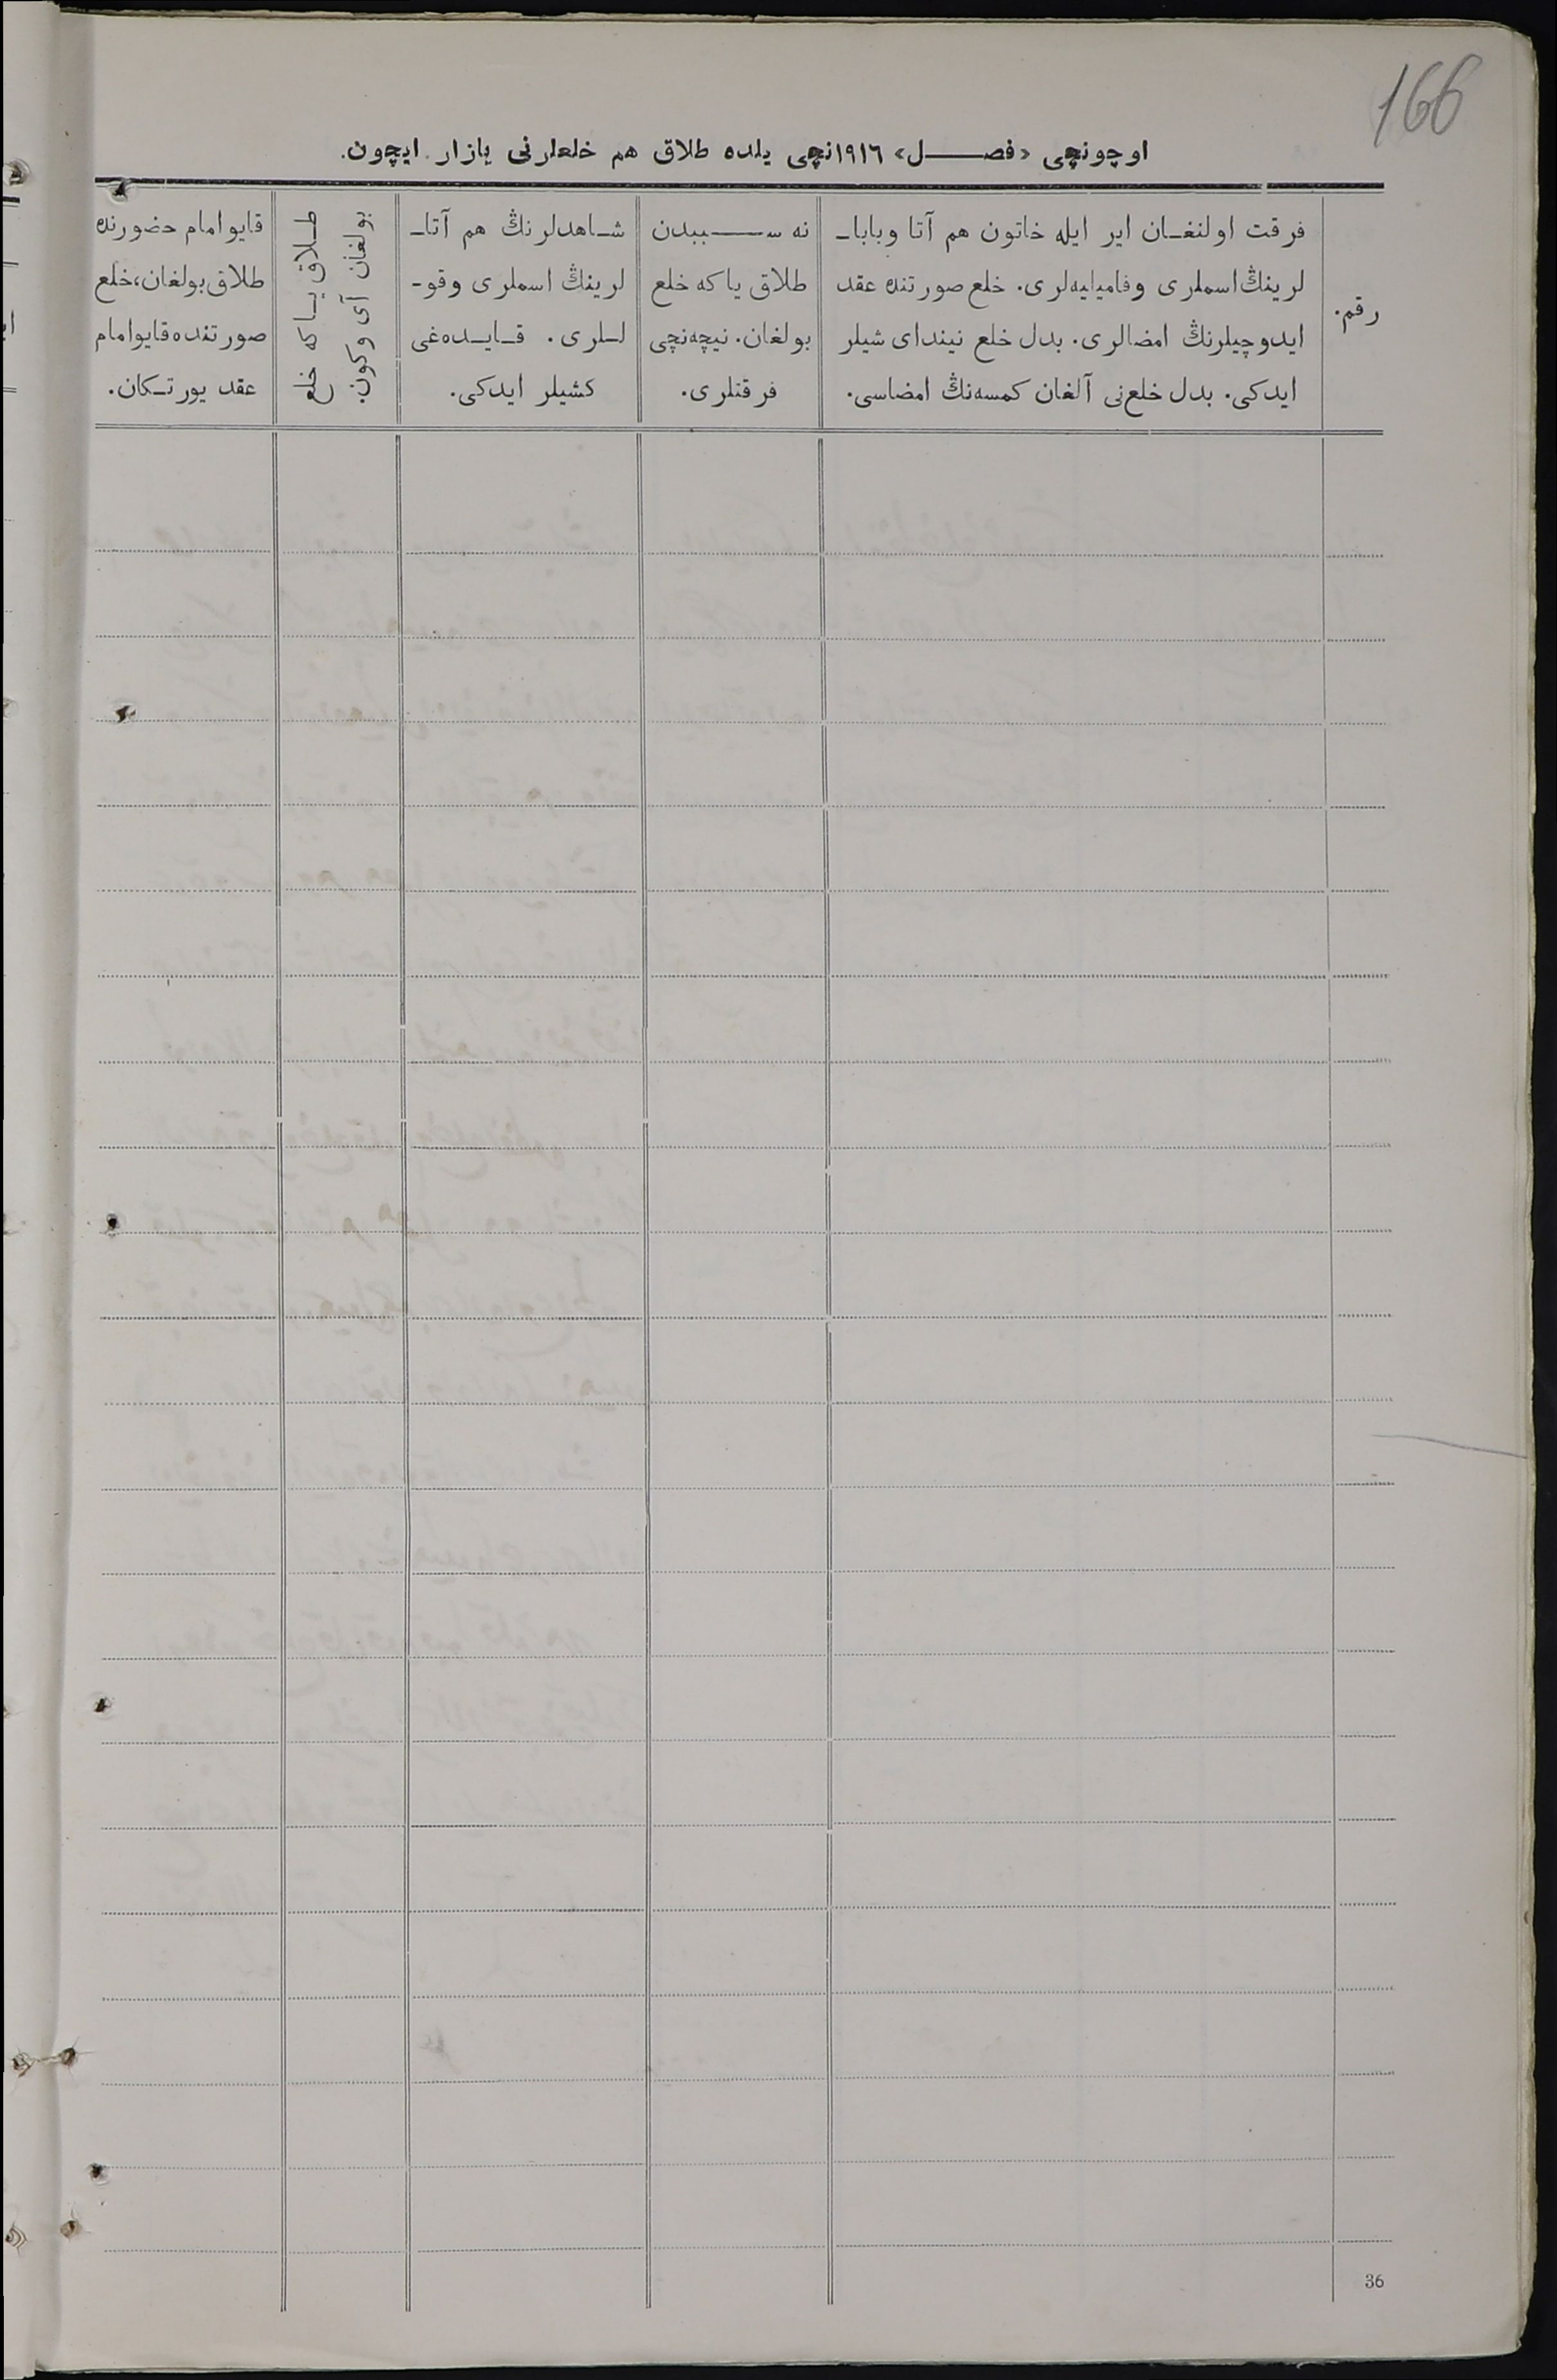 166
اوچونچی «فصل» ١٩١٦نچی یلده طلاق هم خلعلرنی یازار ایچون.
رقم.
فرقت اولنغان ایر ایله خاتون هم آتا وبابا-
لرینڭ اسملری وفامیلیه‌لری. خلع صورتنده عقد
ایدوچیلرنڭ امضالری. بدل خلع نیندای شیلر
ایدکی. بدل خلع‌نی آلغان کمسه‌نڭ امضاسی.
نه سببدن
طلاق یاکه خلع
بولغان. نیچه‌نچی
فرقتلری.
شاهدلرنڭ هم آتا-
لرینڭ اسملری وقو-
للری. قایده‌غی
کشیلر ایدکی.
طلاق یاکه خلع
بولغان آی وکون.
قایو امام حضورنده
طلاق بولغان، خلع
صورتنده قایو امام
عقد یورتکان.
36